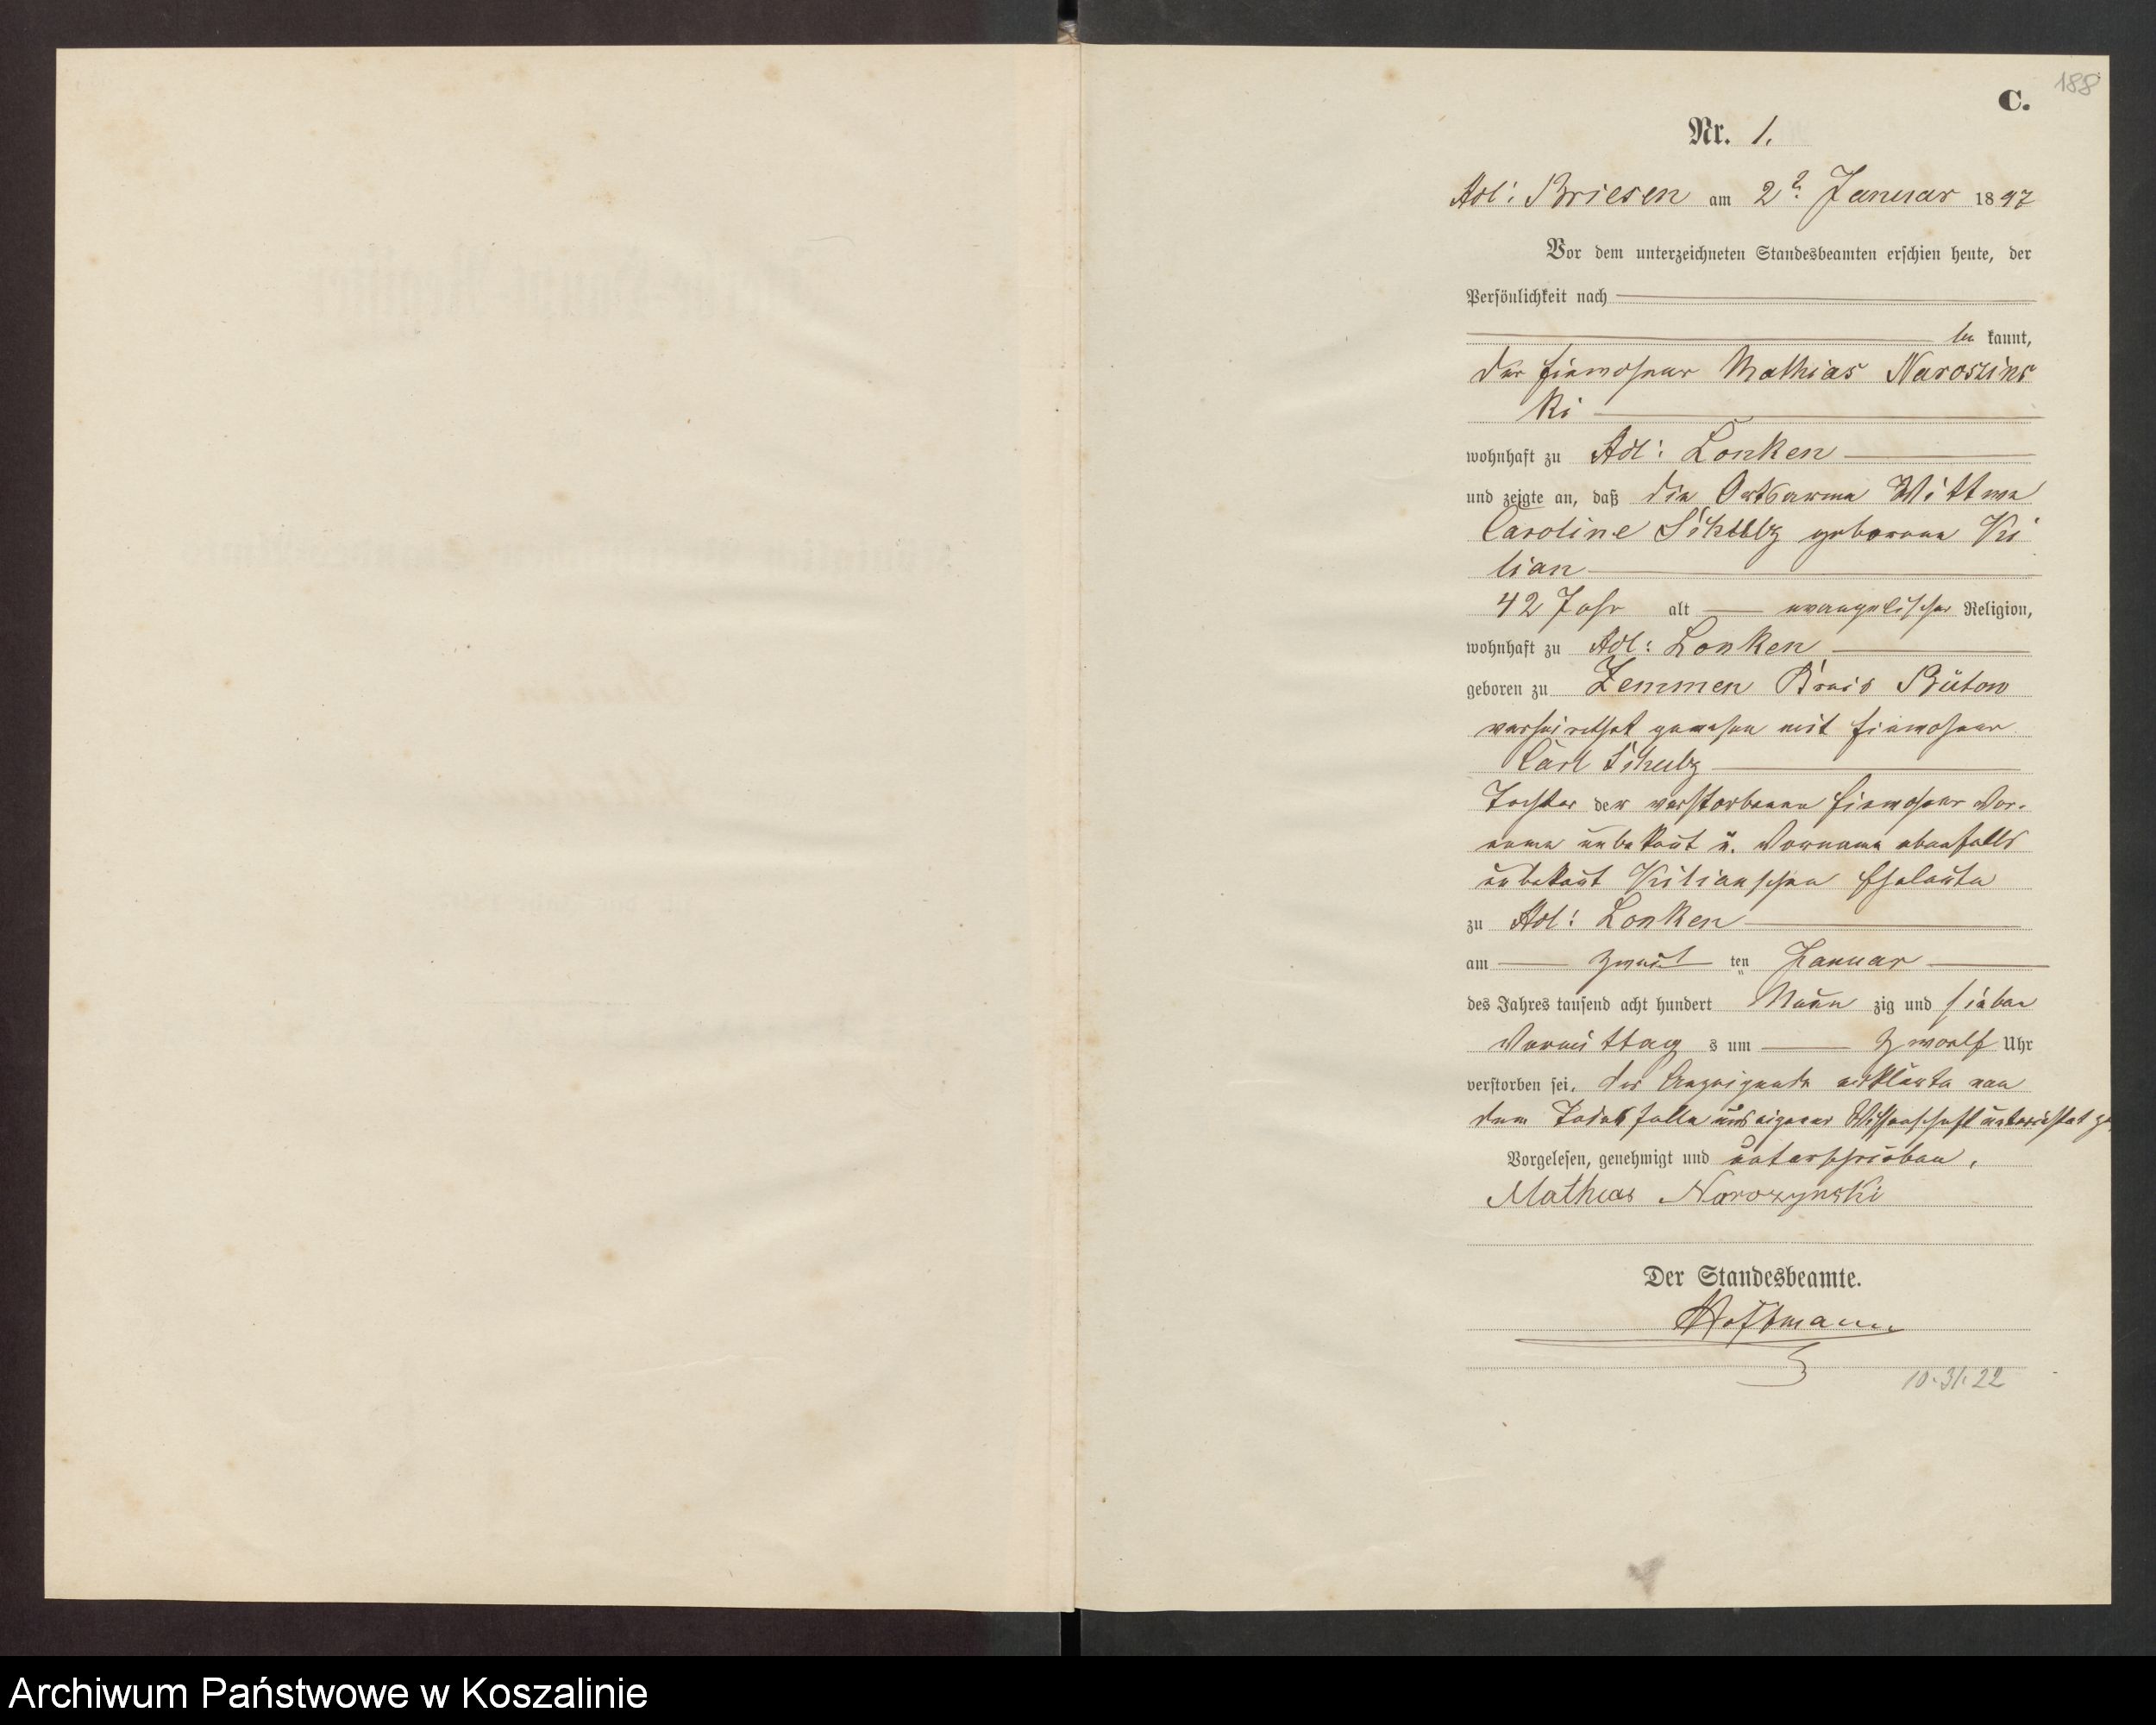 188
C.
Nr. 1.
Adl: Briesen am 2t Januar 1897
Vor dem unterzeichneten Standesbeamten erschien heute, der
Persönlichkeit nach
be kannt,
der Einwohner Mathias Naroszins
ki
wohnhaft zu Adl: Lonken
und zeigte an, daß die Ortsarme Wittwe
Caroline Schulz geborene Ki
lian
42 Jahr alt evangelischer Religion,
wohnhaft zu Adl: Lonken
geboren zu Zemmen Kreis Bütow
verheirathet gewesen mit Einwohner
Carl Schulz
Tochter der verstorbenen Einwohner Vor-
name unbekañt u. Vorname ebenfalls
unbekañt Kilianschen Eheleute
zu Adl: Lonken
am zweit ten Januar
des Jahres tausend acht hundert Neun zig und sieben
Vormittag s um zwoelf Uhr
verstorben sei. Der Anzeigende erklärte von
dem Todesfalle aus eigener Wissenschaft unterrichtet zu
Vorgelesen, genehmigt und unterschrieben.
Mathias Narozynski
Der Standesbeamte.
Hoffmann
10.31.22
Archiwum Państwowe w Koszalinie